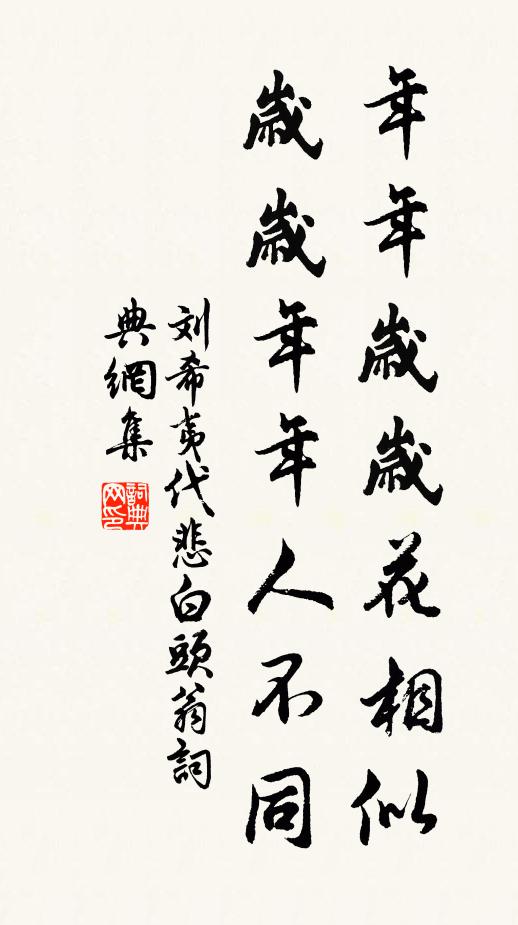 年年歲歲花相似
歲歲年年人不同
刘希夷代悲白頭翁詞
典網集
詞典
网印